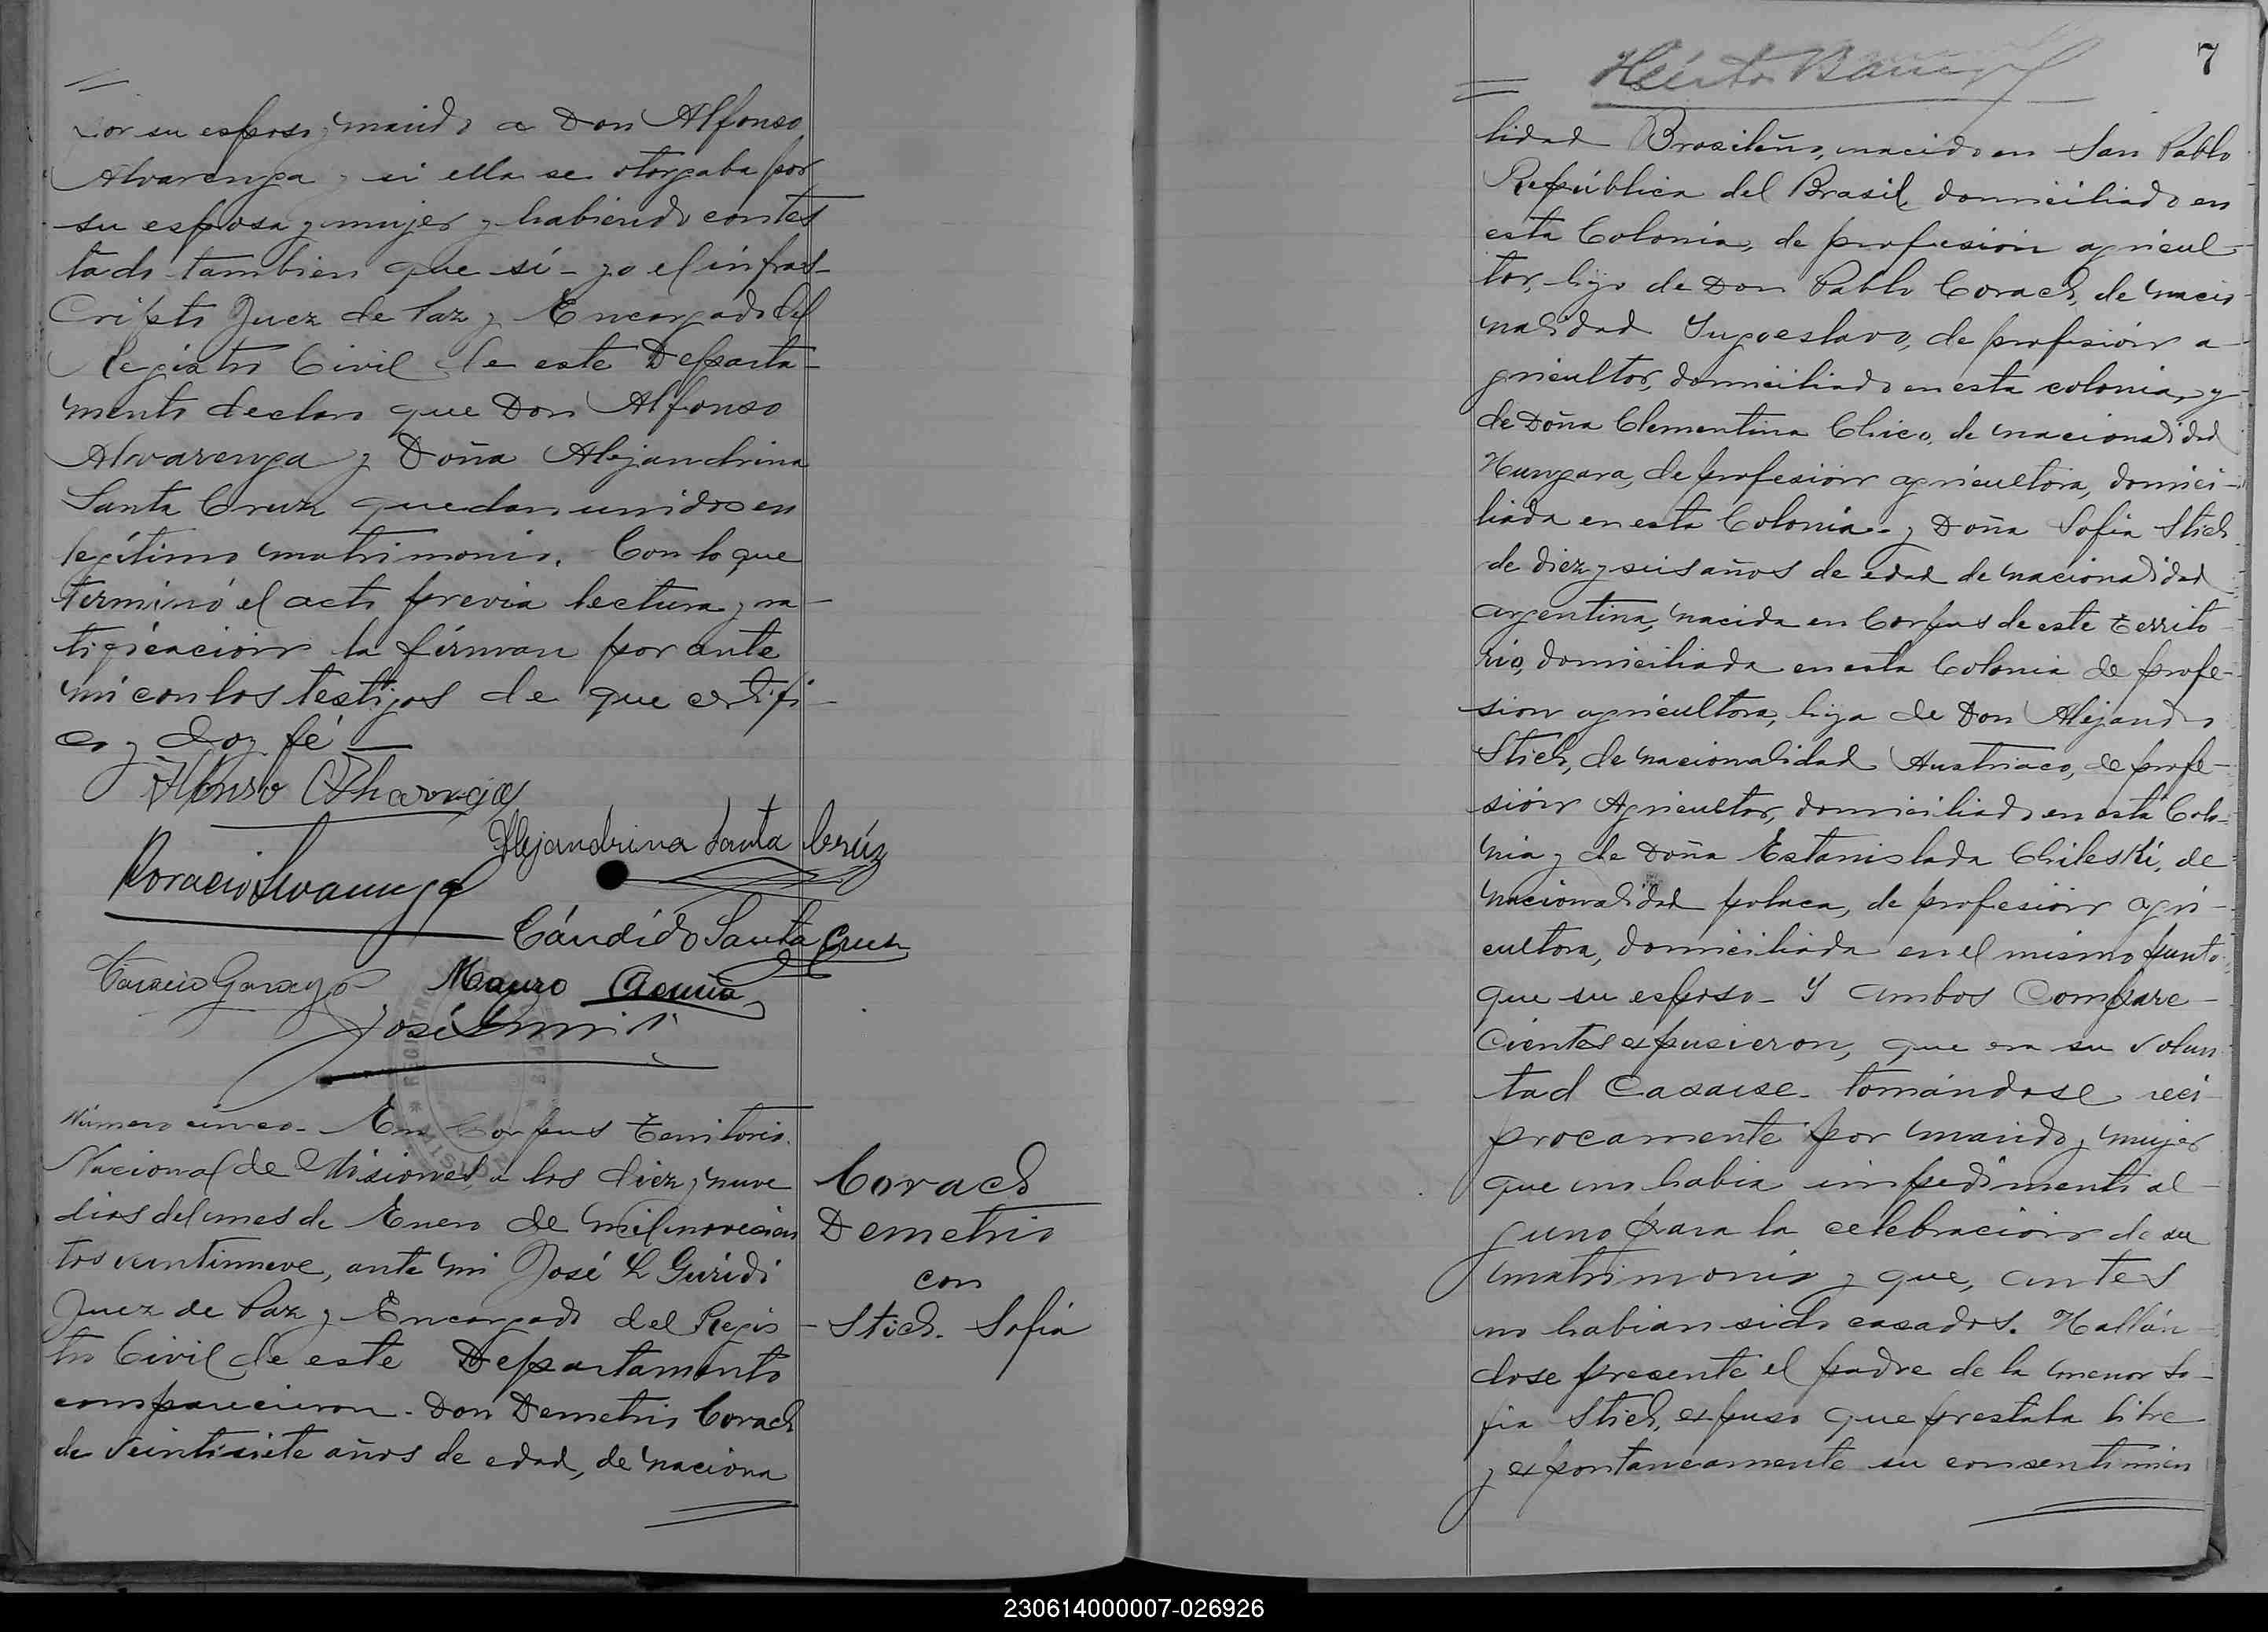 por su esposo y marido a Don Alfonso
Alvarenga y si ella se otorgaba por
su esposa y mujer y habiendo contes
tado tambien que sí - yo el infras-
cripto Juez de Paz y Encargado del
Registro Civil de este Departa-
mento declaro que Don Alfonso
Alvarenga y Doña Alejandrina
Santa Cruz quedan unidos en
legítimo matrimonio. Con lo que
terminó el acto previa lectura y ra-
tificación la firman por ante
mi con los testigos de que certifi-
co y doy fé —
Alfonso Alvarenga
Alejandrina Santa Crúz
Horacio Alvarenga
Cándido Santa Cruz
Mauro Acuña
José
Número cinco - En Corpus Territorio
Nacional de Misiones a los diez y nueve
dias del mes de Enero de mil novecien
tos veintinueve, ante mi José L Guridi
Juez de Paz y Encargado del Regis-
tro Civil de este Departamento
comparecieron - Don Demetrio Corach
de veintisiete años de edad, de naciona
Corach
Demetrio
con
Stich. Sofia
7
lidad Brasileño, nacido en San Pablo
República del Brasil domiciliado en
esta Colonia, de profesión agricul-
tor, hijo de Don Pablo Corach, de nacio-
nalidad Yugoeslavo, de profesión a-
gricultor, domiciliado en esta colonia, y
de Doña Clementina Chico, de nacionalidad
Hungara, de profesión agricultora, domici-
liada en esta Colonia - y Doña Sofia Stich
de diez y seis años de edad de nacionalidad
argentina, nacida en Corpus de este Territo-
rio, domiciliada en esta Colonia de profe-
sion agricultora, hija de Don Alejandro
Stich, de nacionalidad Austriaco, de profe-
sión Agricultor, domiciliado en esta Colo-
nia y de Doña Estanislada Chileski, de
nacionalidad polaca, de profesión agri-
cultora, domiciliada en el mismo punto
que su esposo - Y ambos compare-
cientes expusieron, que era su volun
tad casarse - tomándose recí-
procamente por marido y mujer
que no habia impedimento al-
guno para la celebración de su
matrimonio y que, antes
no habian sido casados. Hallán-
dose presente el padre de la menor So-
fia Stich, expuso que prestaba libre
y expontaneamente su consentimien
230614000007-026926